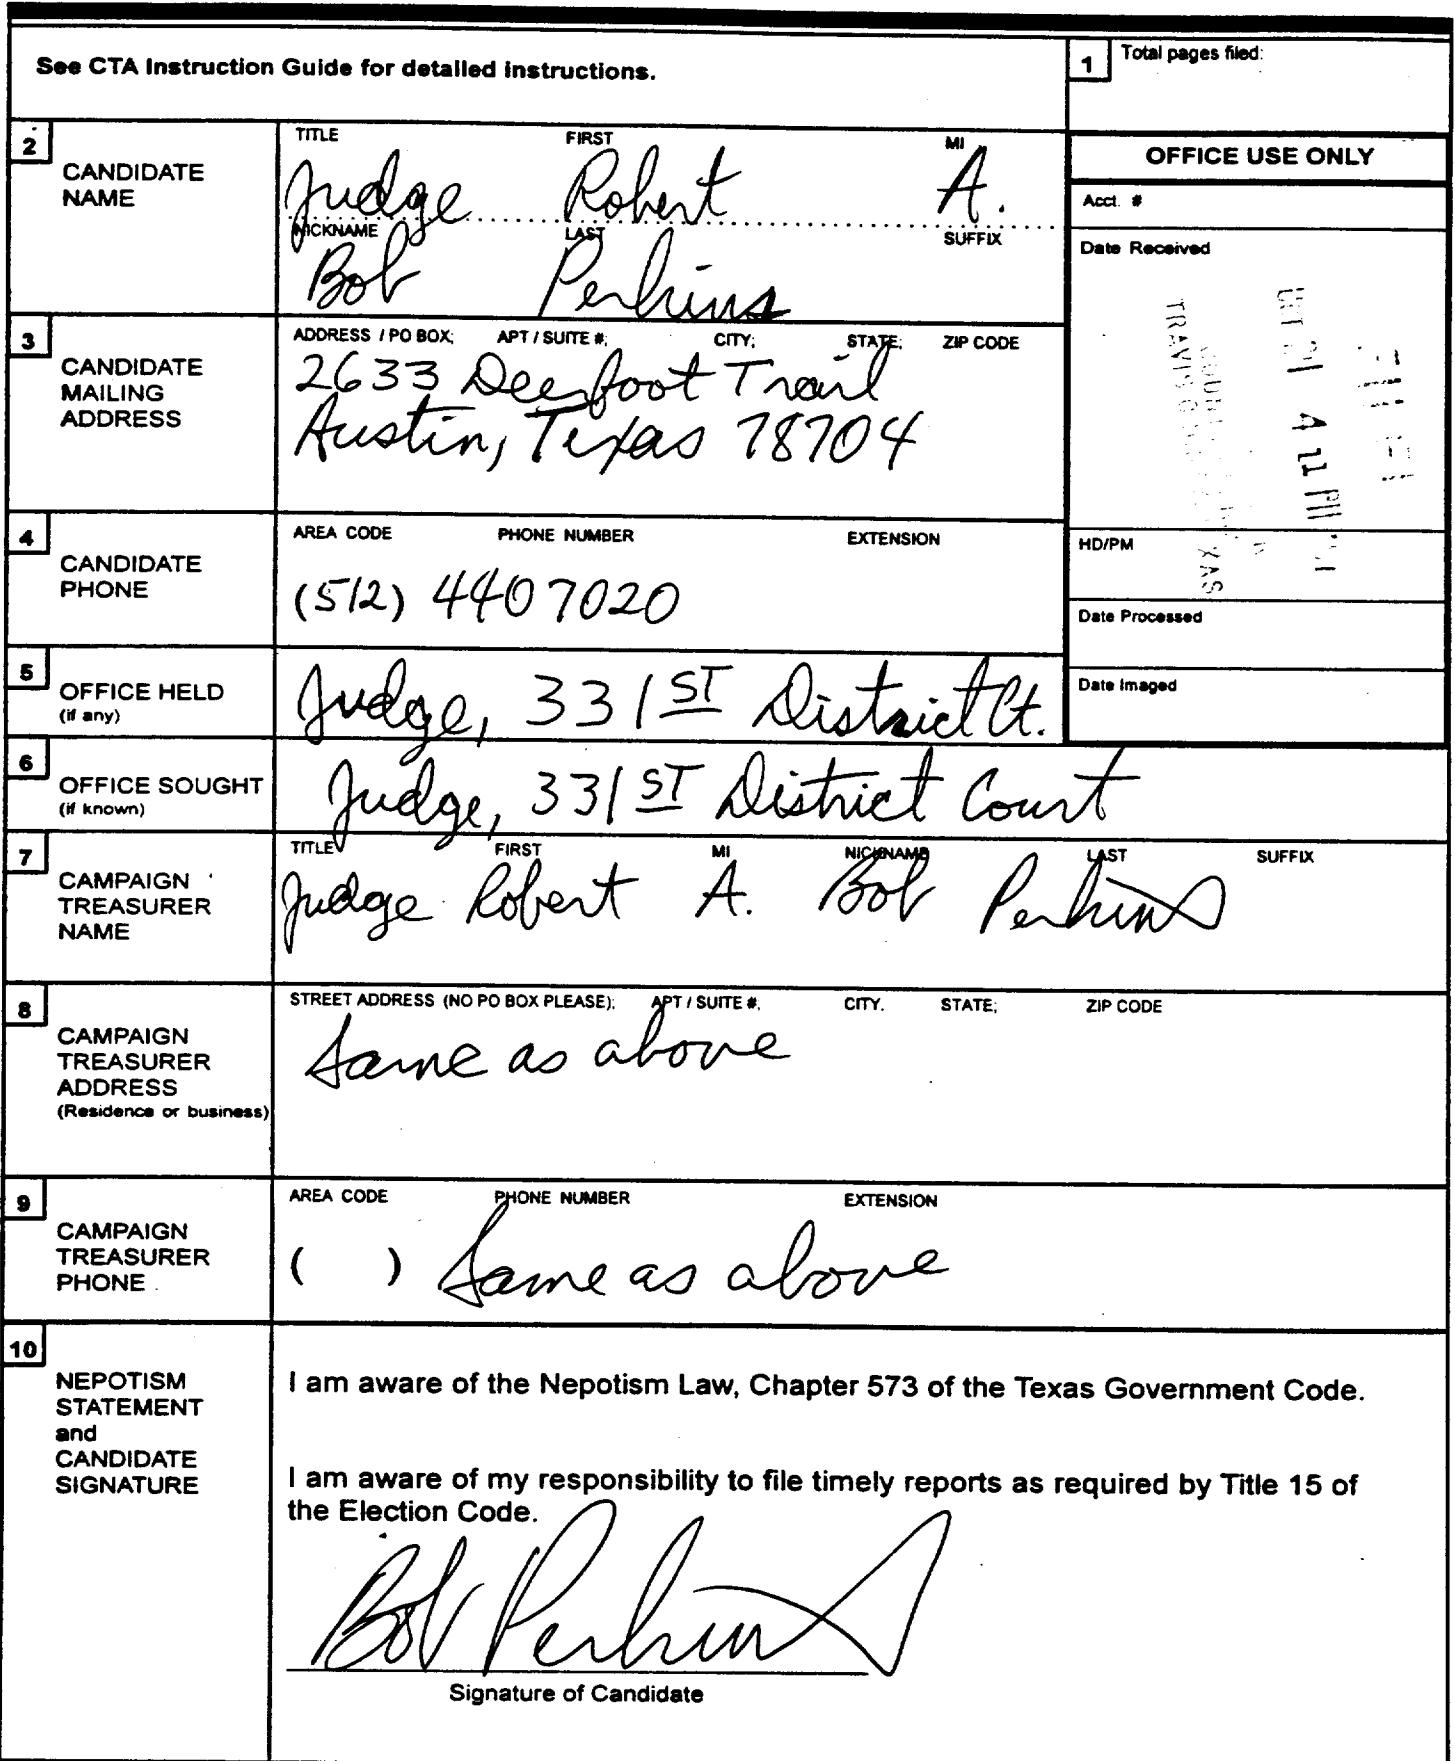 See CTA Instruction Guide for detailed instructions.
1 Total pages filed:
2 CANDIDATE
NAME
TITLE FIRST MI
Judge Robert A.
NICKNAME LAST SUFFIX
Bob Perkins
OFFICE USE ONLY
Acct. #
Date Received
4 11 PM
TRAVIS
XAS
HD/PM
Date Processed
Date Imaged
3 CANDIDATE
MAILING
ADDRESS
ADDRESS / PO BOX; APT / SUITE #; CITY; STATE; ZIP CODE
2633 Deerfoot Trail
Austin, Texas 78704
4 CANDIDATE
PHONE
AREA CODE PHONE NUMBER EXTENSION
(512) 440 7020
5 OFFICE HELD
(if any)
Judge, 331ST District Ct.
6 OFFICE SOUGHT
(if known)
Judge, 331ST District Court
7 CAMPAIGN
TREASURER
NAME
TITLE FIRST MI NICKNAME LAST SUFFIX
Judge Robert A. Bob Perkins
8 CAMPAIGN
TREASURER
ADDRESS
(Residence or business)
STREET ADDRESS (NO PO BOX PLEASE); APT / SUITE #; CITY. STATE; ZIP CODE
Same as above
9 CAMPAIGN
TREASURER
PHONE
AREA CODE PHONE NUMBER EXTENSION
( ) Same as above
10 NEPOTISM
STATEMENT
and
CANDIDATE
SIGNATURE
I am aware of the Nepotism Law, Chapter 573 of the Texas Government Code.
I am aware of my responsibility to file timely reports as required by Title 15 of
the Election Code.
Bob Perkins
Signature of Candidate